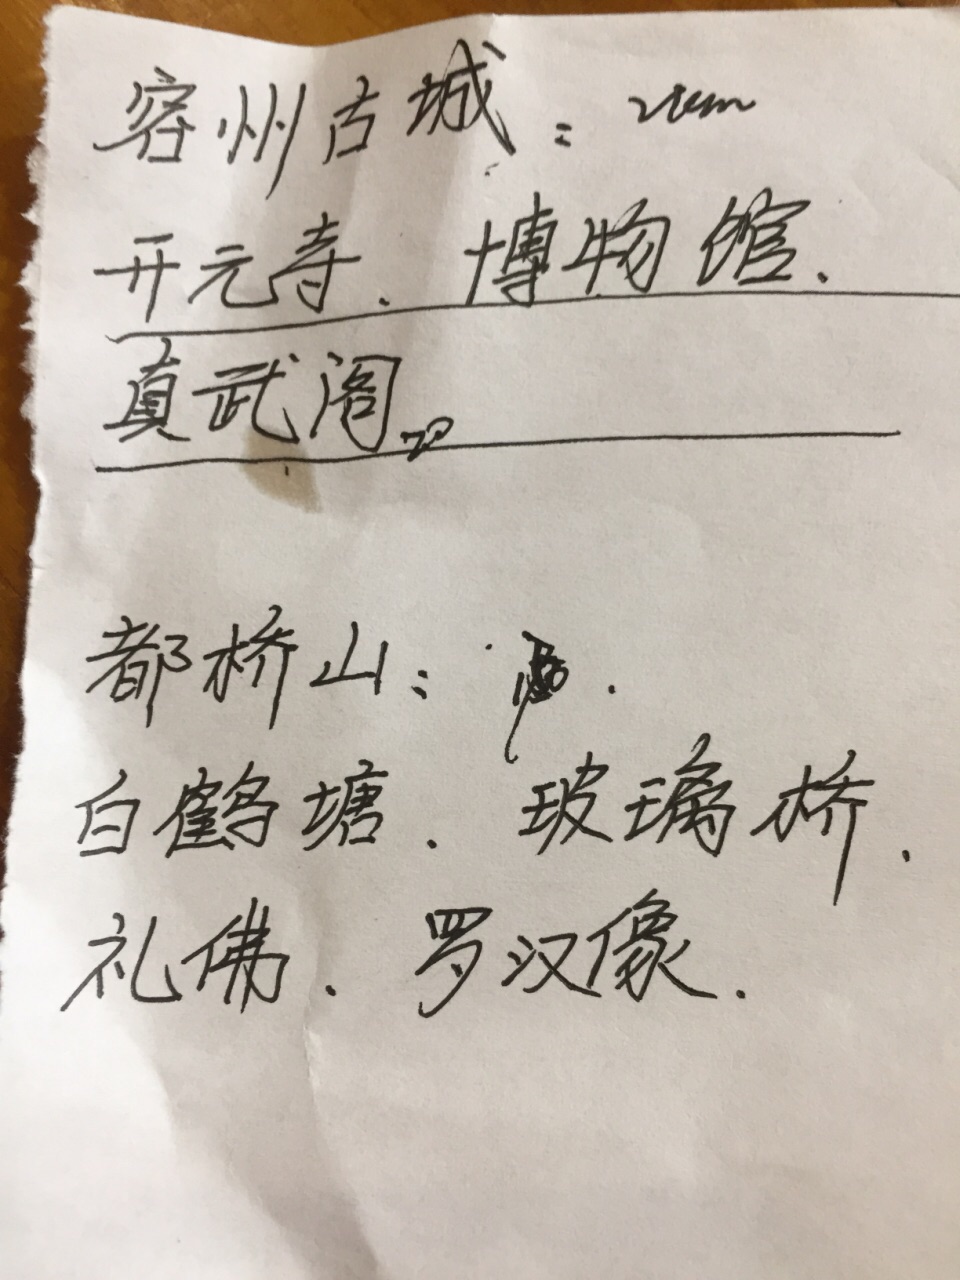 容州古城：2km
开元寺、博物馆、
真武阁。
都桥山：
白鹤塘、玻璃桥、
礼佛、罗汉像.